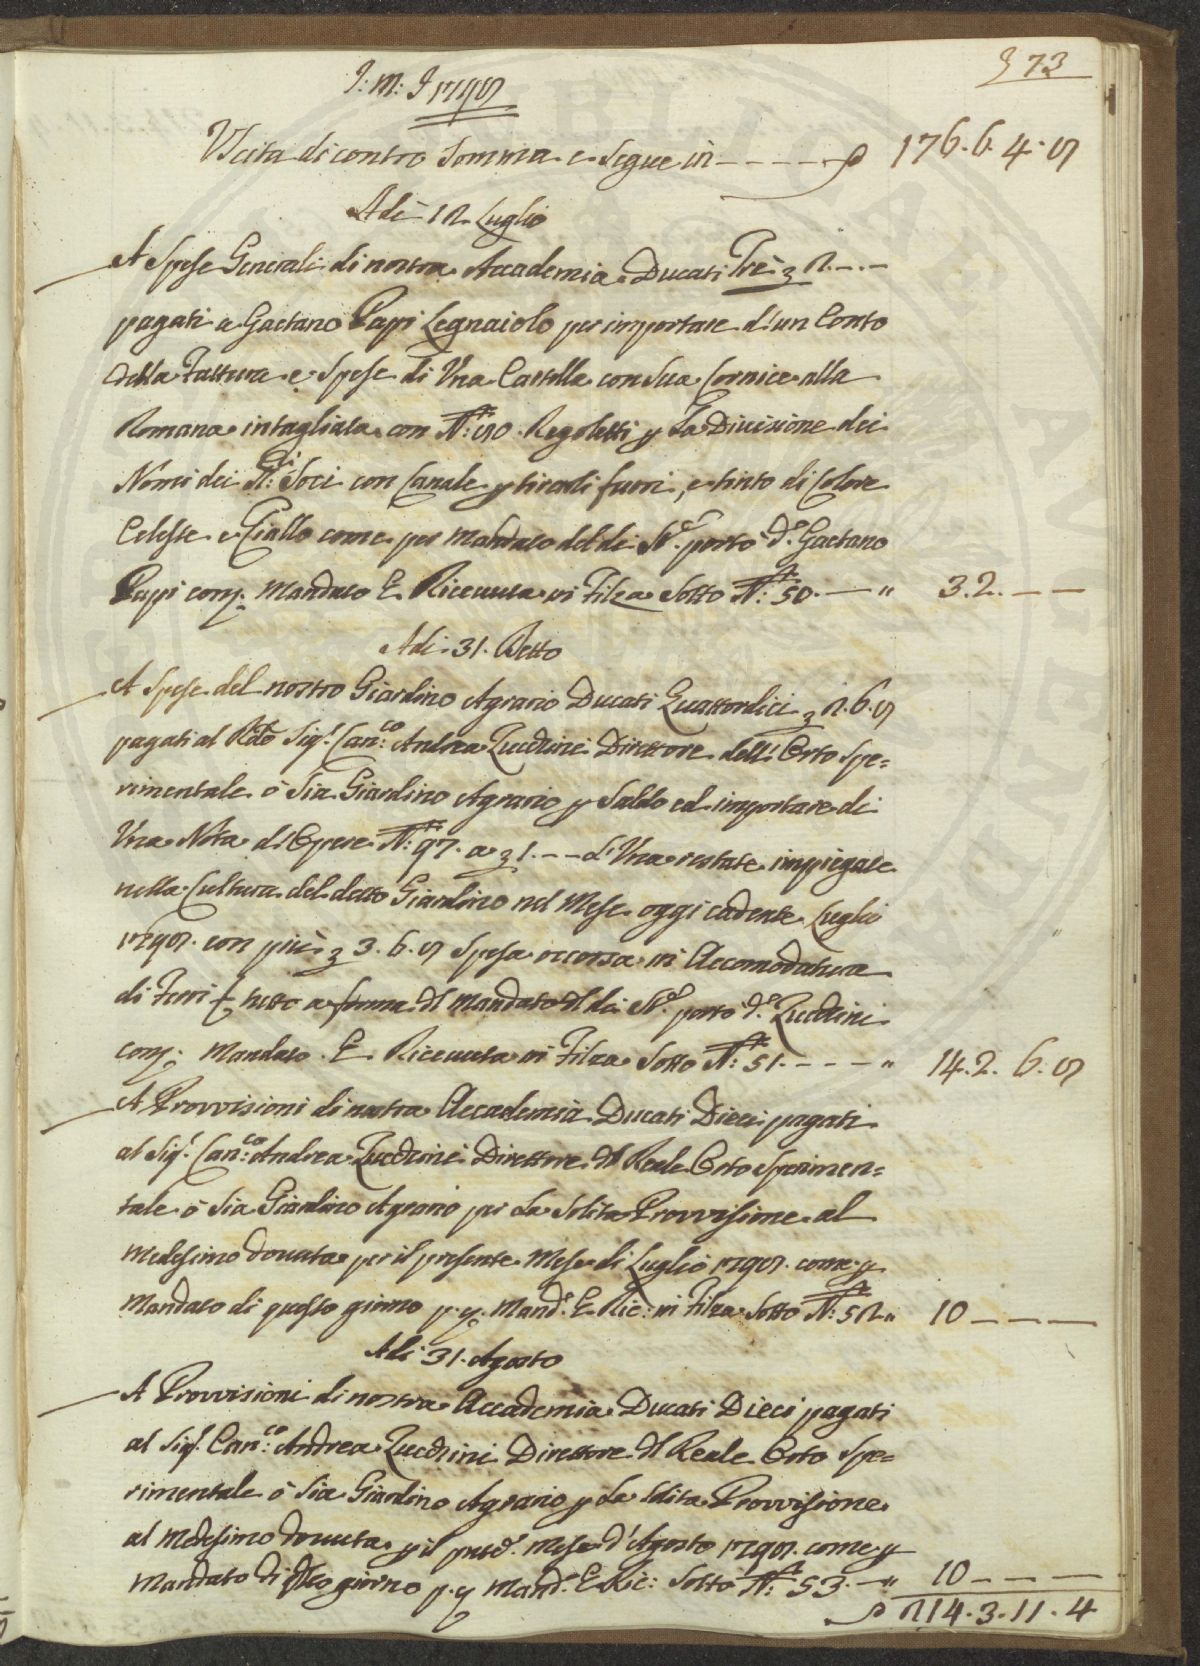 73
J: M: J 1792
Uscita di contro Somma e segue in - - - - 176. 6. 4. 2
Adi 12 Luglio
A Spese Generali di nostra Accademia Ducati Tre 2. - -
pagati a Gaetano Papi Legnaiolo per importare d'un Conto
della Fattura e Spese di Una Cartella con Sua Cornice alla
Romana intagliata con N.° 90 Regoletti p La Divisione dei
Nomi dei SS:ri Soci con Canale p tirarli fuori, e tinto di Colore
Celeste e Giallo come per Mandato del dì S.° porto d.° Gaetano
Papi conf. Mandato E Ricevuta in Filza Sotto N.° 50. — " 3. 2. — —
Adi 31. Detto
A Spese del nostro Giardino Agrario Ducati Quattordici 2. 6. 2
pagati al Rdo Sig.r Can:co Andrea Zucchini Direttore dell'Orto Spe=
rimentale ò Sia Giardino Agrario p Saldo ed importare di
Una Nota d'Opere N.° 97. a 1. — — d'Una restate impiegate
nella Cultura del detto Giardino nel Mese oggi cadente Luglio
1792. con più 3. 6. 2 Spesa occorsa in Accomodatura
di Ferri tutto a forma dl Mandato dl dì S.° porto d.° Zucchini
conf. Mandato E Ricevuta in Filza Sotto N.° 51. - - - - " 14. 2. 6. 2
A Provvisioni di nostra Accademia Ducati Dieci pagati
al Sig.r Can:co Andrea Zucchini Direttore dl Reale Orto Sperimen=
tale ò Sia Giardino Agrario per La Solita Provvisione al
Medesimo dovuta per il presente Mese di Luglio 1792. come p
Mandato di questo giorno p. p. Mand.° E Ric: in Filza Sotto N.° 52 " 10 — — —
Adi 31. Agosto
A Provvisioni di nostra Accademia Ducati Dieci pagati
al Sig.r Can:co Andrea Zucchini Direttore dl Reale Orto Spe=
rimentale ò Sia Giardino Agrario p La Solita Provvisione
al Medesimo dovuta p il pres.e Mese d'Agosto 1792. come p
Mandato di qsto giorno p. p. Mand.° E Ric: Sotto N.° 53. — " 10 — — —
214. 3. 11. 4